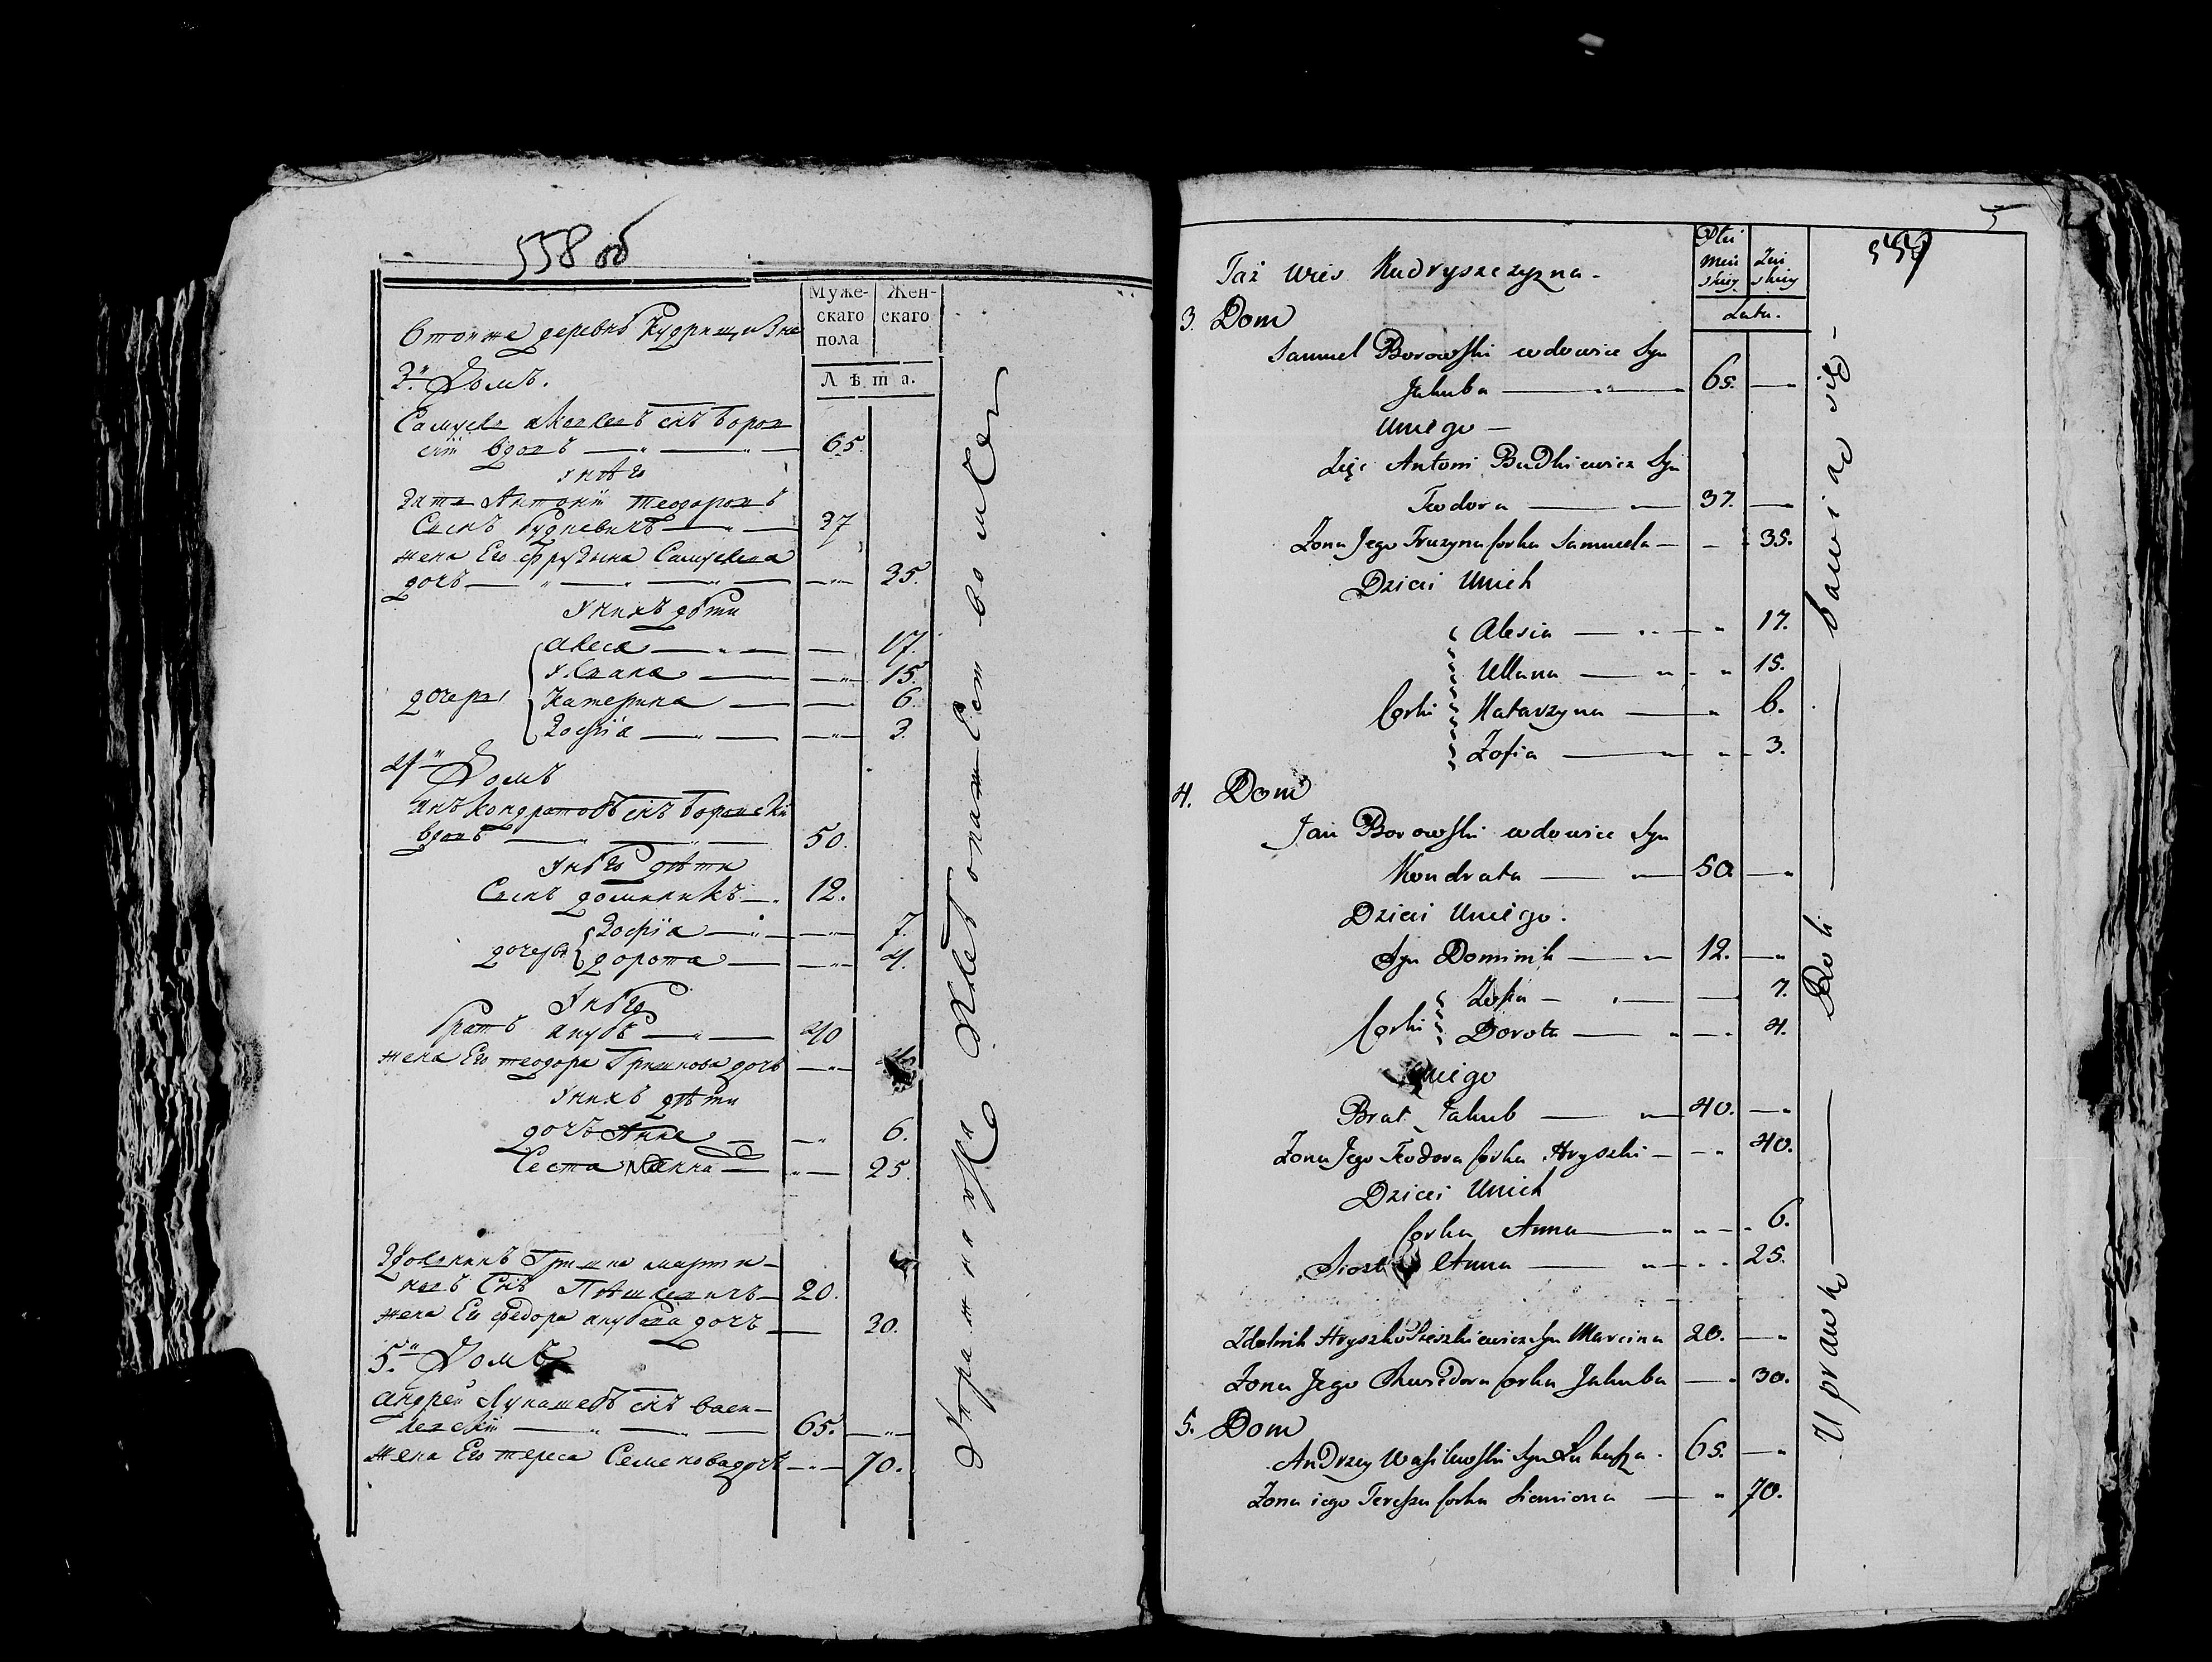 558 об
Муже-
скаго
пола
Жен-
скаго
Лѣта.
В тойже деревнѣ
3й Домъ.
Самуель Яковлевъ снъ Боров
скій вдовъ 65.
У него
Зять Антоній Теодоровъ
Сынъ Будкевичъ 37
жена Его Фрузына Самуелева
дочь 35.
У нихъ дѣти
дочери
Алеся 17.
Уляна 15.
Катерина 6.
Зофія 3.
4й Домъ
Янъ Кондратовъ снъ Боровскій
вдовъ 50.
У него дѣти
Сынъ Доминикъ 12.
дочери
Зофія 7.
Дорота 4.
У него
Братъ Якубъ 40
жена Его Теодора Гришкова дочь
У нихъ дѣти
дочь Анна 6.
Сестра Анна 25.
Гришка Марти-
новъ Снъ 20.
жена Ег Федора Якубова дочь 30.
5й Домъ
Андрей Лукашевъ снъ Васи-
левскій 65.
жена Его Тереса Семенова дочь 70.
5
559
Płci
Męż
skiey
Żeń
skiey
Lata.
Taż wieś Kudryszczyzna
3. Dom
Samuel Borowski wdowiec Syn
Jakuba 65.
U niego
Zięć Antoni Budkiewicz Syn
Teodora 37.
Zona Jego Fruzyna Corka Samuela 35.
Dzieci U nich
Corki
Alesia 17.
Ullana 15.
Katarzyna 6.
Zofia 3.
4. Dom
Jan Borowski wdowiec Syn
Kondrata 50
Dzieci U niego.
Syn Dominik 12.
Corki
Zofia 7.
Dorota 4.
U niego
Brat Jakub 40.
Zona Jego Teodora Corka Hryszki 40.
Dzieci U nich
Corka Anna 6.
Siostra Anna 25.
Hryszko Pieszkiewicz Syn Marcina 20.
Zona Jego Chwiedora Corka Jakuba 30.
5. Dom
Andrzey Wasilewski Syn Łukasza 65.
Zona iego Teressa Corka Siemiona 70.
Uprawką Roli bawią się